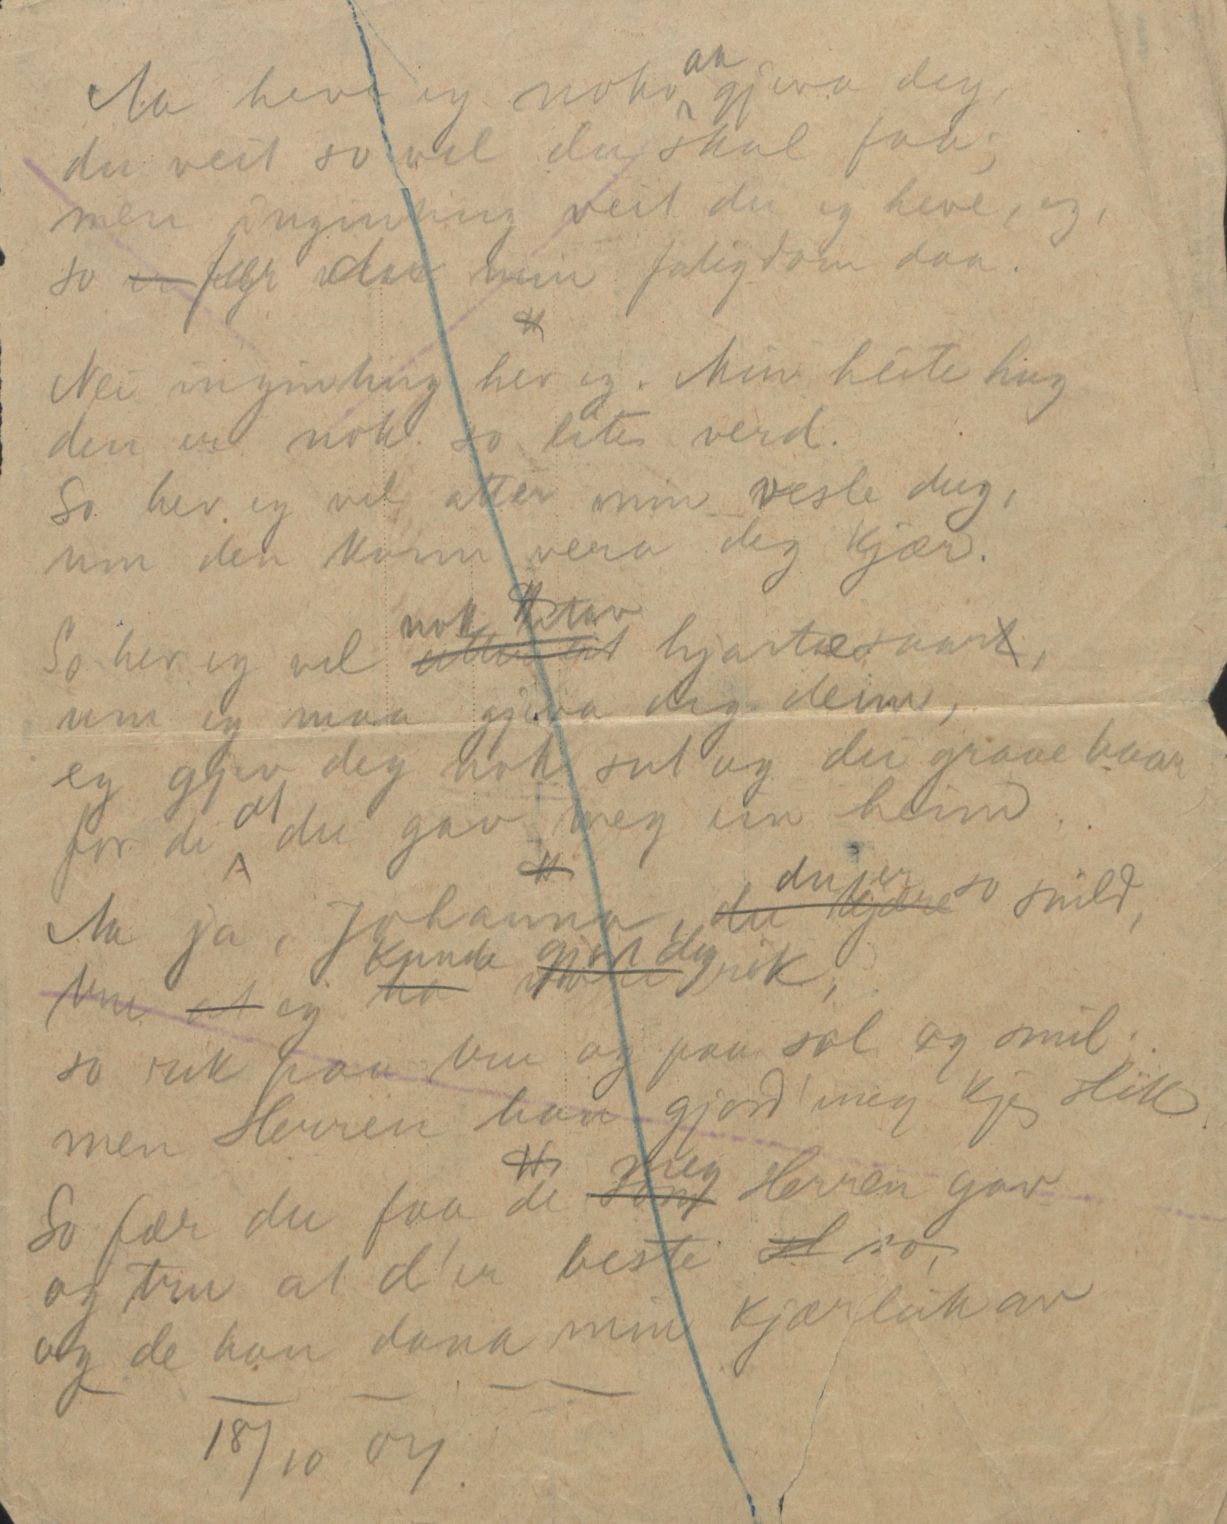 Aa heve eg noko aa gjeva deg,
du veit so vel du skal faa;
men inginting veit du eg heve, eg,
so er fær du min fatigdom daa.
#
Nei inginting hev eg. Min heite hug
den er nok so liten verd.
So hev eg vel atter min vesle dug,
um den kann vera deg kjær.
#
So hev eg vel nok hjartesaart,
um eg maa gjeva deg deim,
eg gjev deg nok sut og dei graae haar
for di at du gav meg ein heim.
#
Aa ja, Johanna, du kjære du er so snild,
tru at eg ha kunde gjort deg rik,
so rik paa tru og paa sol og smil;
men Herren han gjord' meg kje slik
#
So fær du faa de som meg Herren gav
og tru at d'er beste so,
og de han dana min kjærleik av
— — — — —
18/10 07.